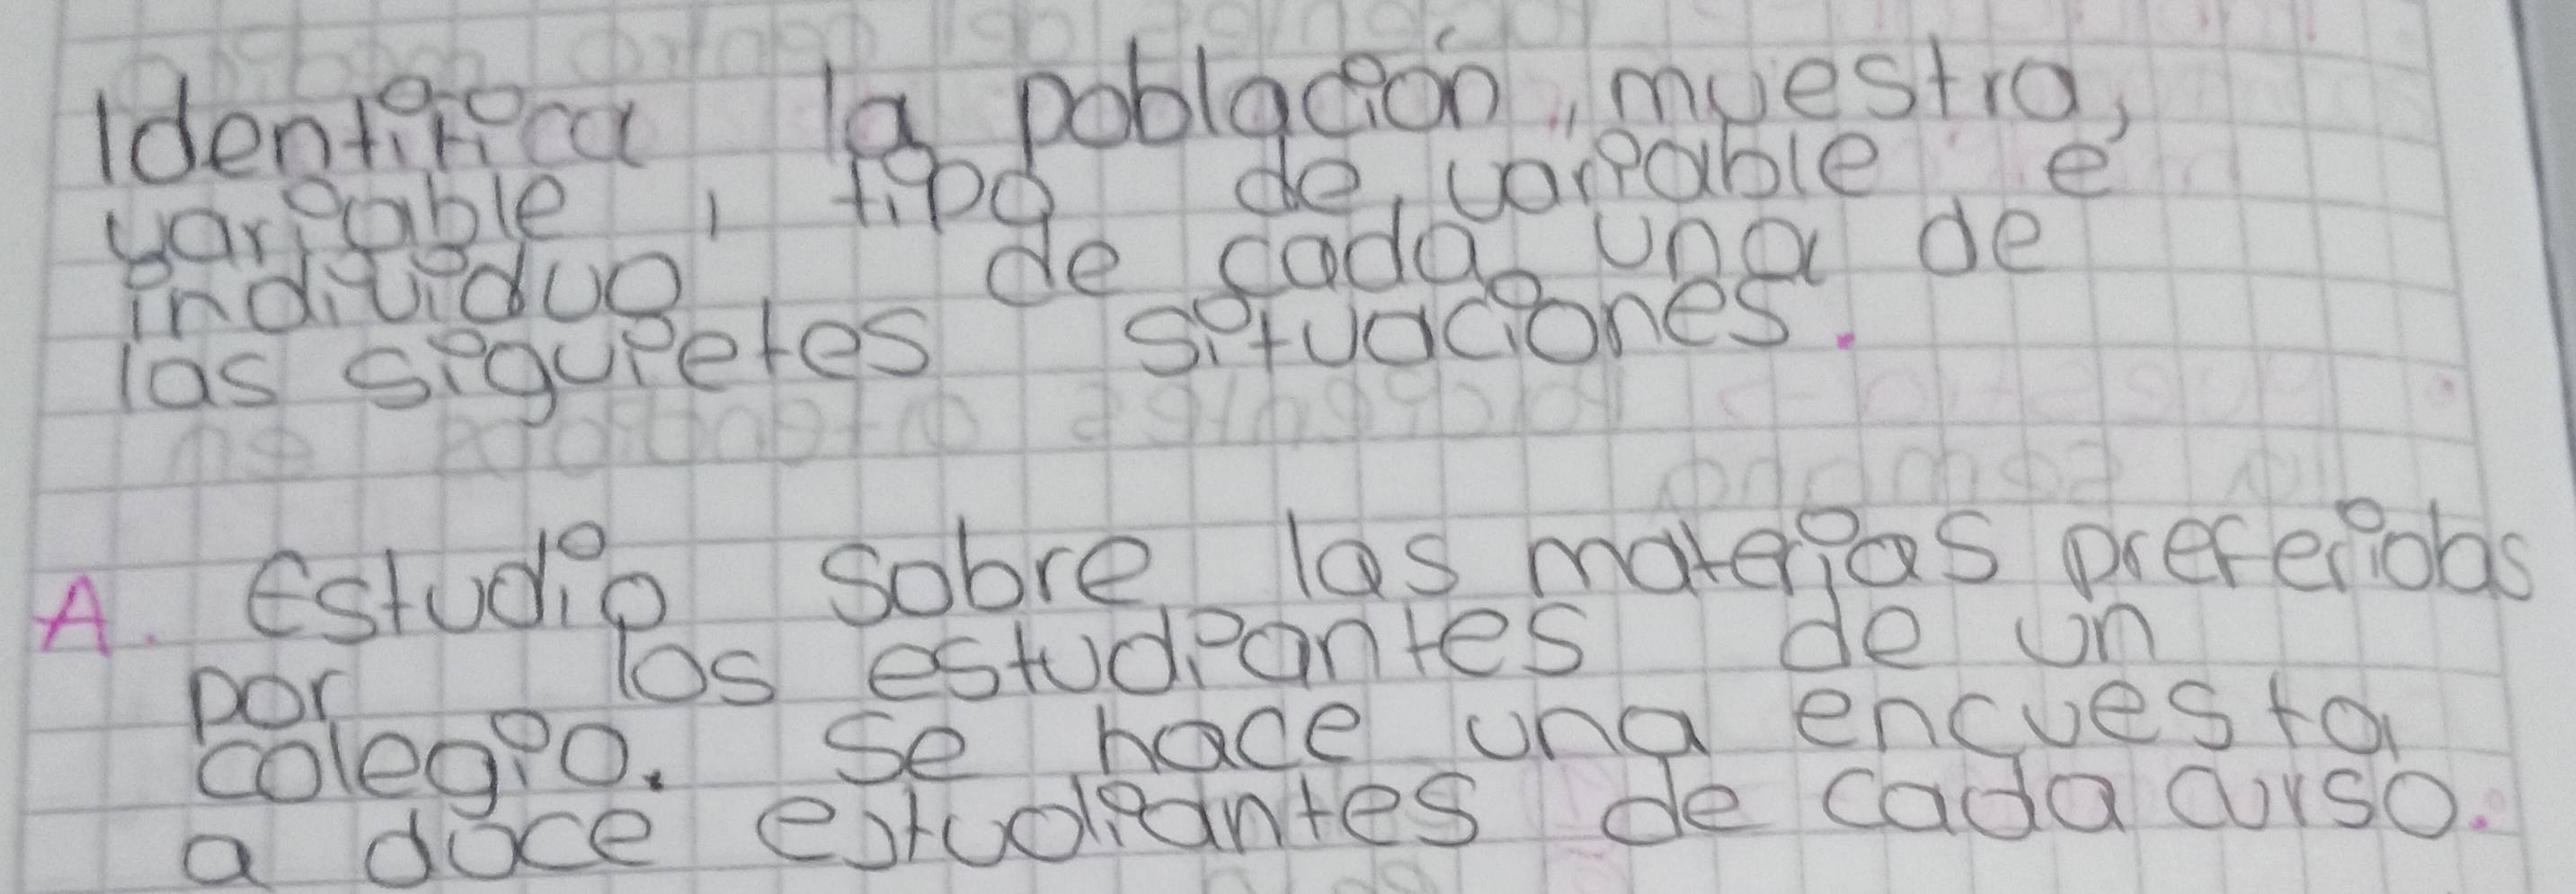 Identifica la población, muestra,
variable, tipo de variable e
individuo de cada una de
las siguietes situaciones.
A. Estudio sobre las materias preferidas
por los estudiantes de un
colegio. se hace una encuesta
a doce estudiantes de cada curso.